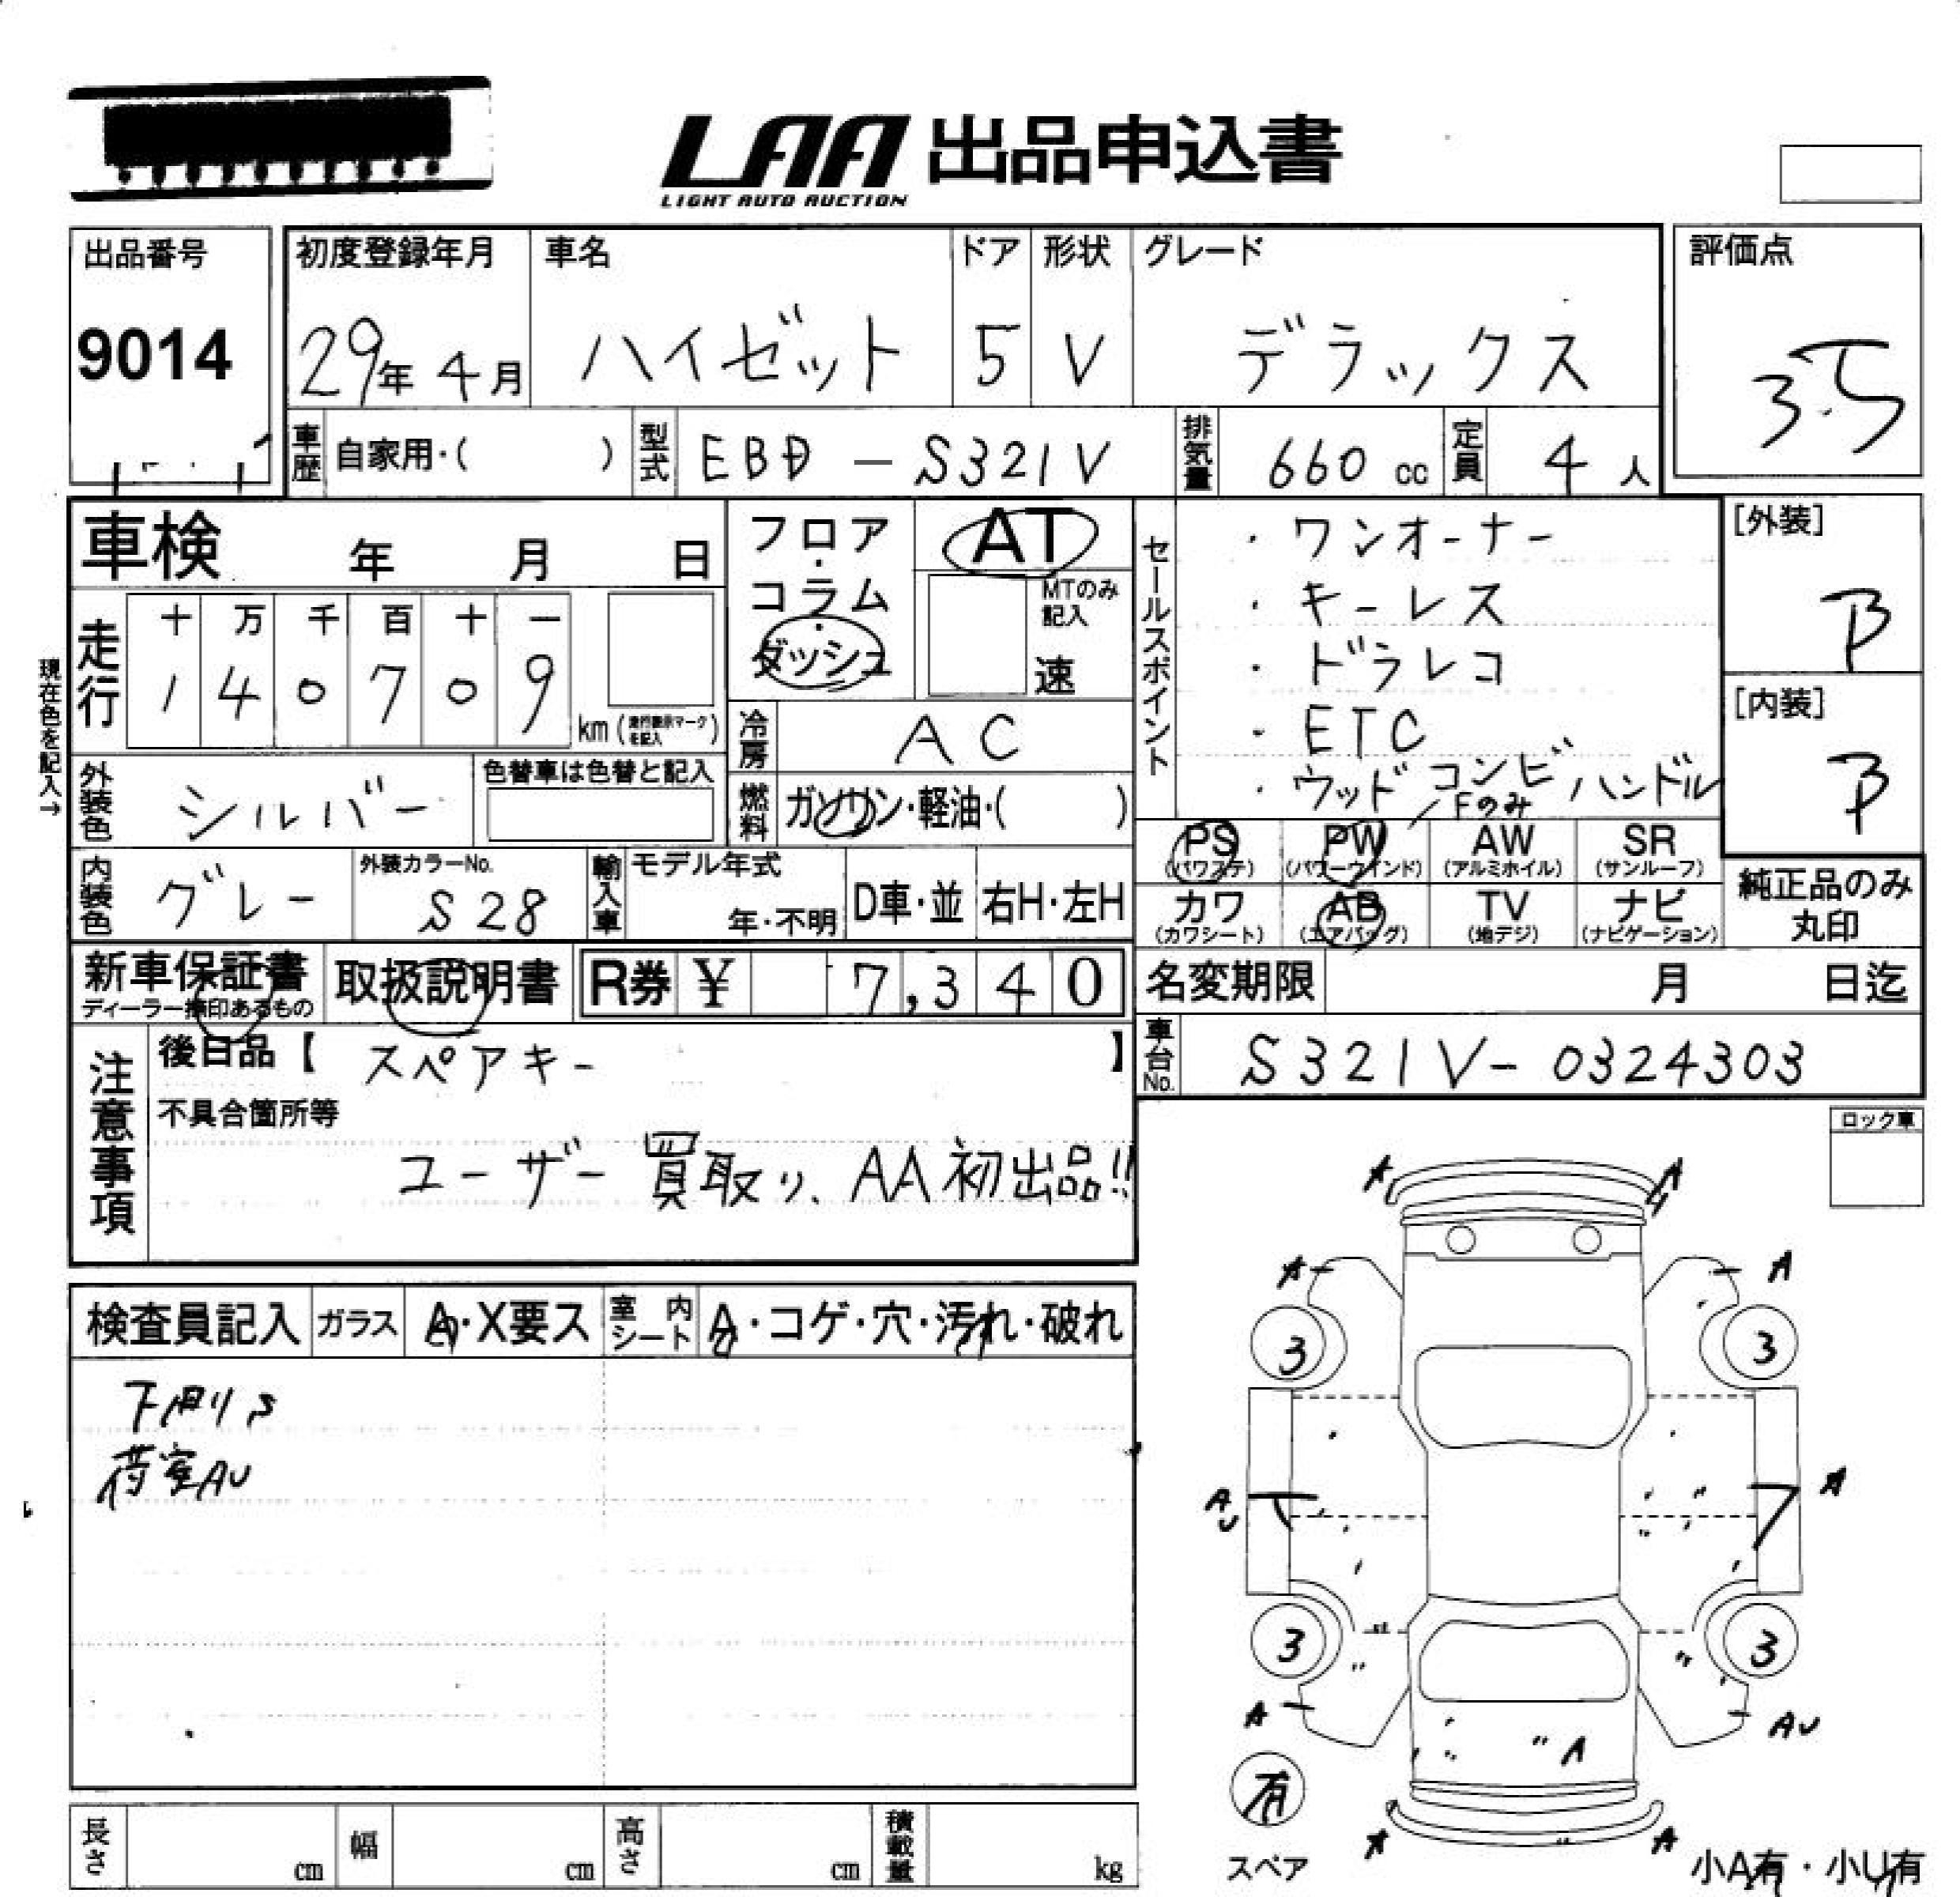 LAA 出品申込書
LIGHT AUTO AUCTION
出品番号 初度登録年月 車名 ドア 形状 グレード 評価点
9014 29年 4月 ハイゼット 5 V デラックス 3.5
車歴 自家用・( ) 型式 EBD - S321V 排気量 660 cc 定員 4 人
車検 年 月 日
フロア・コラム・ダッシュ
AT
MTのみ記入
速
セールスポイント
・ワンオーナー
・キーレス
・ドラレコ
・ETC
・ウッドコンビハンドル
[外装]
B
[内装]
B
現在色を記入→
走行 十 万 千 百 十 一
1 4 0 7 0 9 km
冷房 AC
外装色 シルバー 色替車は色替と記入
燃料 ガソリン・軽油・( )
Fのみ
PS (パワステ) PW (パワーウインド) AW (アルミホイル) SR (サンルーフ)
カワ (カワシート) AB (エアバッグ) TV (地デジ) ナビ (ナビゲーション)
純正品のみ丸印
内装色 グレー 外装カラーNo. S28 輸入車 モデル年式 年・不明 D車・並 右H・左H
新車保証書 取扱説明書 R券 ¥ 7,340
ディーラー捺印あるもの
名変期限 月 日迄
車台No. S321V-0324303
注意事項
後日品【 スペアキー 】
不具合箇所等
ユーザー買取り、AA初出品!!
ロック車
検査員記入 ガラス A・X要ス 室内シート A・コゲ・穴・汚れ・破れ
荷室AU
A A
A A
3 3
AU A
3 3
A AU
A
有
スペア
A A
小A有・小U有
長さ cm 幅 cm 高さ cm 積載量 kg